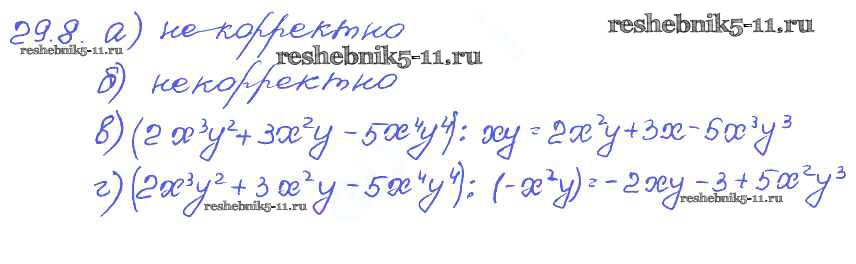 29.8. а) некорректно reshebnik5-11.ru
reshebnik5-11.ru reshebnik5-11.ru
б) некорректно
в) (2x³y² + 3x²y - 5x⁴y⁴) : xy = 2x²y + 3x - 5x³y³
г) (2x³y² + 3x²y - 5x⁴y⁴) : (-x²y) = - 2xy - 3 + 5x²y³
reshebnik5-11.ru reshebnik5-11.ru